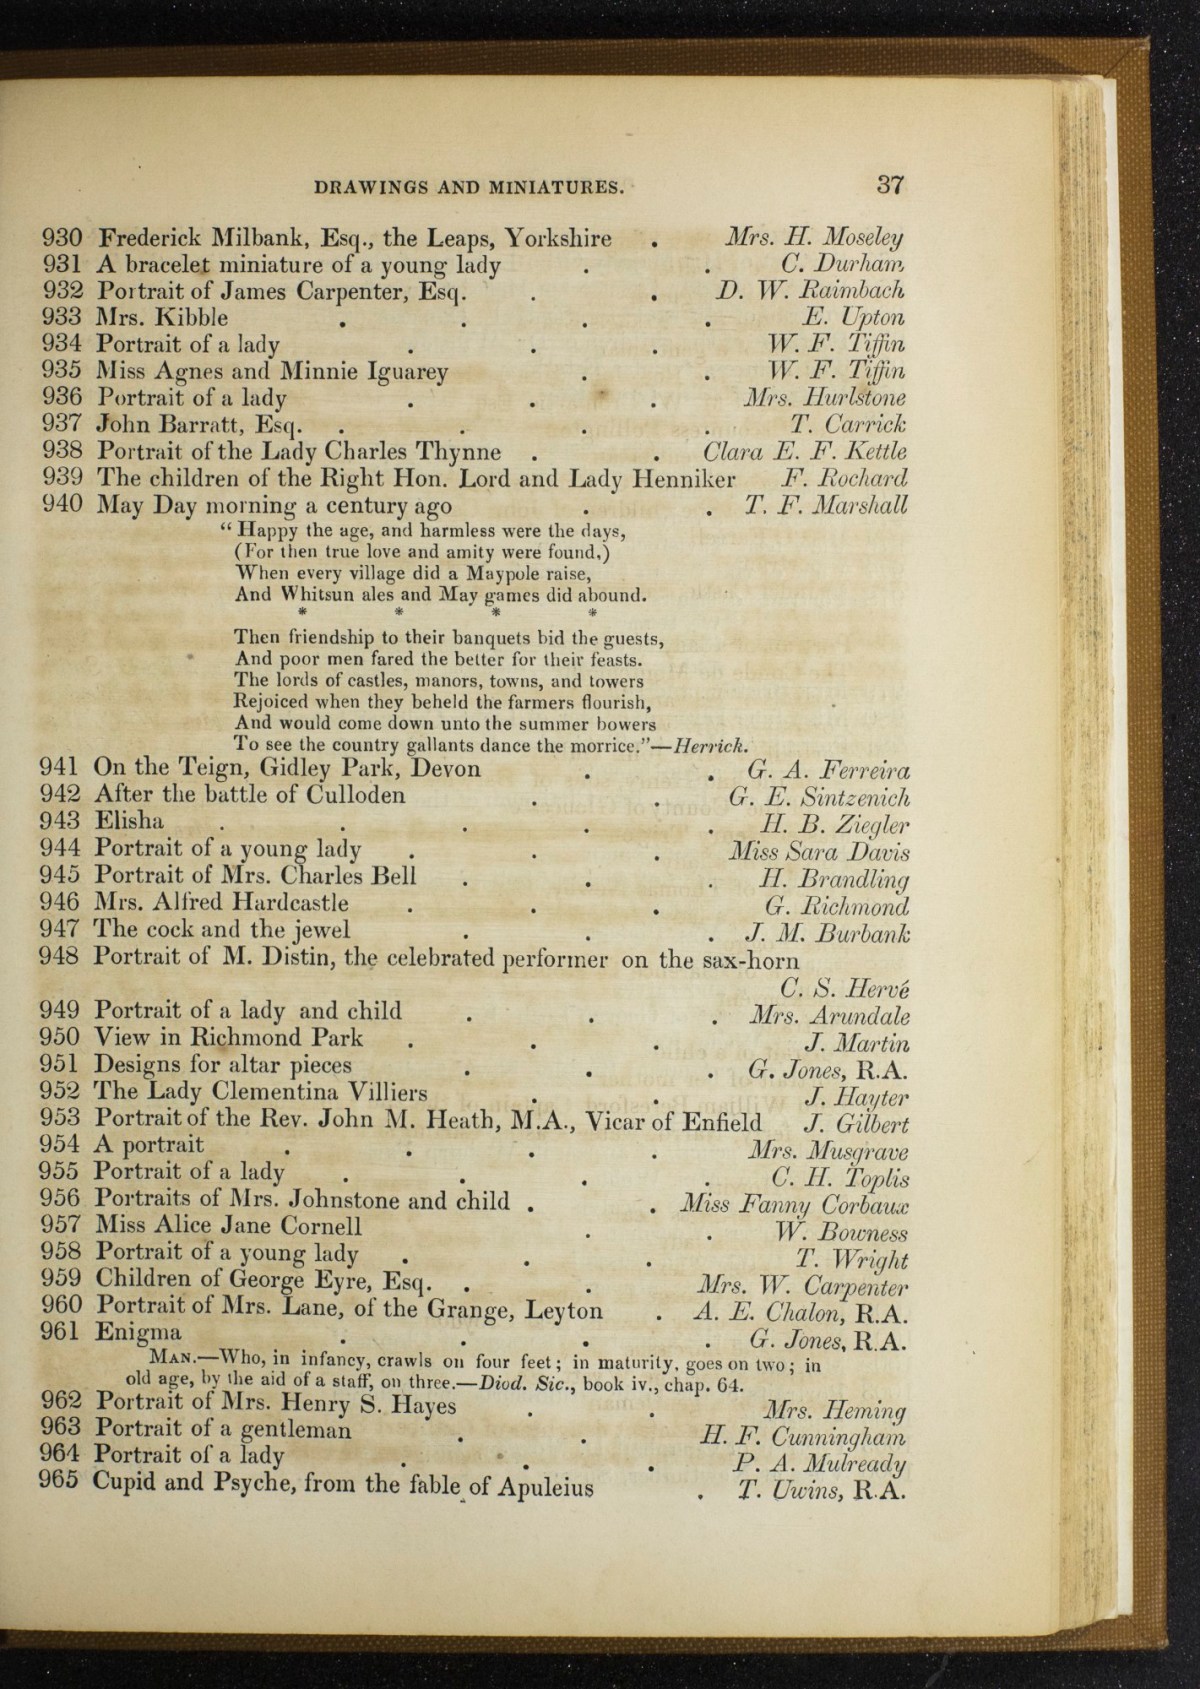 DRAWINGS AND MINIATURES. 37
930 Frederick Milbank, Esq., the Leaps, Yorkshire . Mrs. H. Moseley
931 A bracelet miniature of a young lady . . C. Durham
932 Portrait of James Carpenter, Esq. . . D. W. Raimbach
933 Mrs. Kibble . . . . E. Upton
934 Portrait of a lady . . . W. F. Tiffin
935 Miss Agnes and Minnie Iguarey . . W. F. Tiffin
936 Portrait of a lady . . . Mrs. Hurlstone
937 John Barratt, Esq. . . . . T. Carrick
938 Portrait of the Lady Charles Thynne . . Clara E. F. Kettle
939 The children of the Right Hon. Lord and Lady Henniker F. Rochard
940 May Day morning a century ago . . T. F. Marshall
“ Happy the age, and harmless were the days,
(For then true love and amity were found,)
When every village did a Maypole raise,
And Whitsun ales and May games did abound.
* * * *
Then friendship to their banquets bid the guests,
And poor men fared the better for their feasts.
The lords of castles, manors, towns, and towers
Rejoiced when they beheld the farmers flourish,
And would come down unto the summer bowers
To see the country gallants dance the morrice.”—Herrick.
941 On the Teign, Gidley Park, Devon . . G. A. Ferreira
942 After the battle of Culloden . . G. E. Sintzenich
943 Elisha . . . . . H. B. Ziegler
944 Portrait of a young lady . . . Miss Sara Davis
945 Portrait of Mrs. Charles Bell . . . H. Brandling
946 Mrs. Alfred Hardcastle . . . G. Richmond
947 The cock and the jewel . . . J. M. Burbank
948 Portrait of M. Distin, the celebrated performer on the sax-horn
C. S. Hervé
949 Portrait of a lady and child . . . Mrs. Arundale
950 View in Richmond Park . . . J. Martin
951 Designs for altar pieces . . . G. Jones, R.A.
952 The Lady Clementina Villiers . . J. Hayter
953 Portrait of the Rev. John M. Heath, M.A., Vicar of Enfield J. Gilbert
954 A portrait . . . . Mrs. Musgrave
955 Portrait of a lady . . . . C. H. Toplis
956 Portraits of Mrs. Johnstone and child . . Miss Fanny Corbaux
957 Miss Alice Jane Cornell . . W. Bowness
958 Portrait of a young lady . . . T. Wright
959 Children of George Eyre, Esq. . . Mrs. W. Carpenter
960 Portrait of Mrs. Lane, of the Grange, Leyton . A. E. Chalon, R.A.
961 Enigma . . . . G. Jones, R.A.
MAN.—Who, in infancy, crawls on four feet; in maturity, goes on two; in
old age, by the aid of a staff, on three.—Diod. Sic., book iv., chap. 64.
962 Portrait of Mrs. Henry S. Hayes . . Mrs. Heming
963 Portrait of a gentleman . . H. F. Cunningham
964 Portrait of a lady . . . P. A. Mulready
965 Cupid and Psyche, from the fable of Apuleius . T. Uwins, R.A.